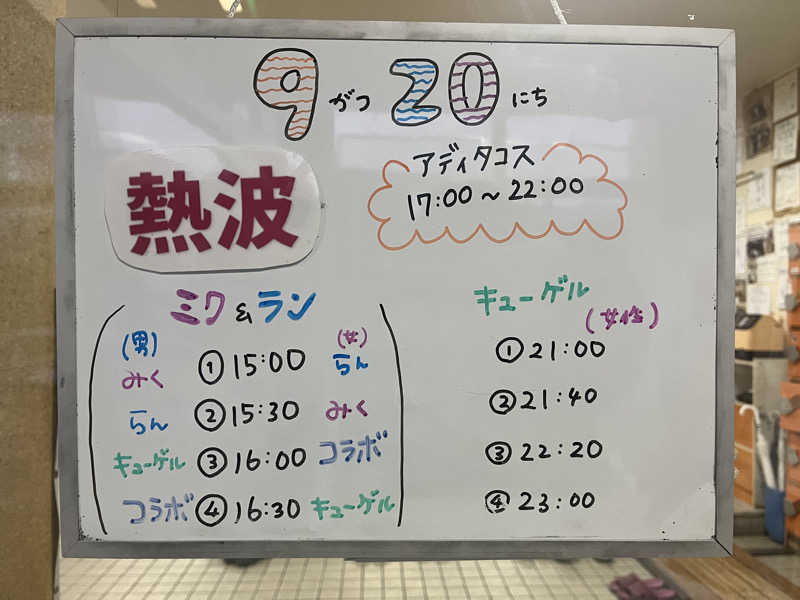 9がつ20にち
熱波
アディタコス
17:00～22:00
ミク&ラン
(男) (女)
みく ①15:00 らん
らん ②15:30 みく
キューゲル ③16:00 コラボ
コラボ ④16:30 キューゲル
キューゲル
(女性)
①21:00
②21:40
③22:20
④23:00